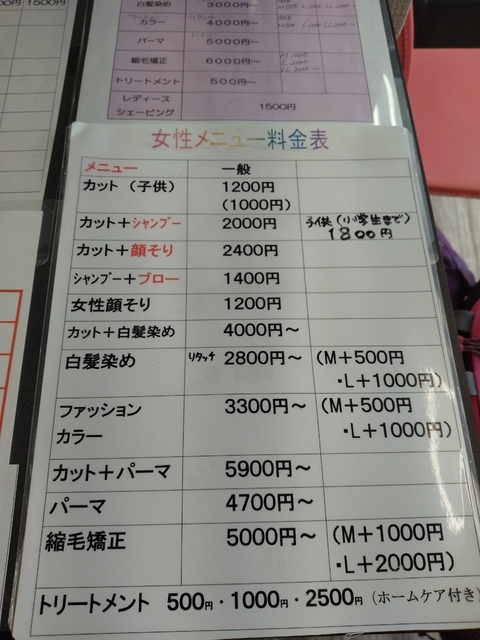 1500円
白髪染め 3000円～
カラー 4000円～
パーマ 5000円～
縮毛矯正 6000円～
トリートメント 500円～
レディース
シェービング 1500円
女性メニュー料金表
メニュー 一般
カット（子供） 1200円
(1000円)
カット＋シャンプー 2000円 子供（小学生まで）
1800円
カット＋顔そり 2400円
シャンプー＋ブロー 1400円
女性顔そり 1200円
カット＋白髪染め 4000円～
白髪染め リタッチ 2800円～ (M＋500円
・L＋1000円)
ファッション 3300円～ (M＋500円
カラー ・L＋1000円)
カット＋パーマ 5900円～
パーマ 4700円～
縮毛矯正 5000円～ (M＋1000円
・L＋2000円)
トリートメント 500円・1000円・2500円 (ホームケア付き)